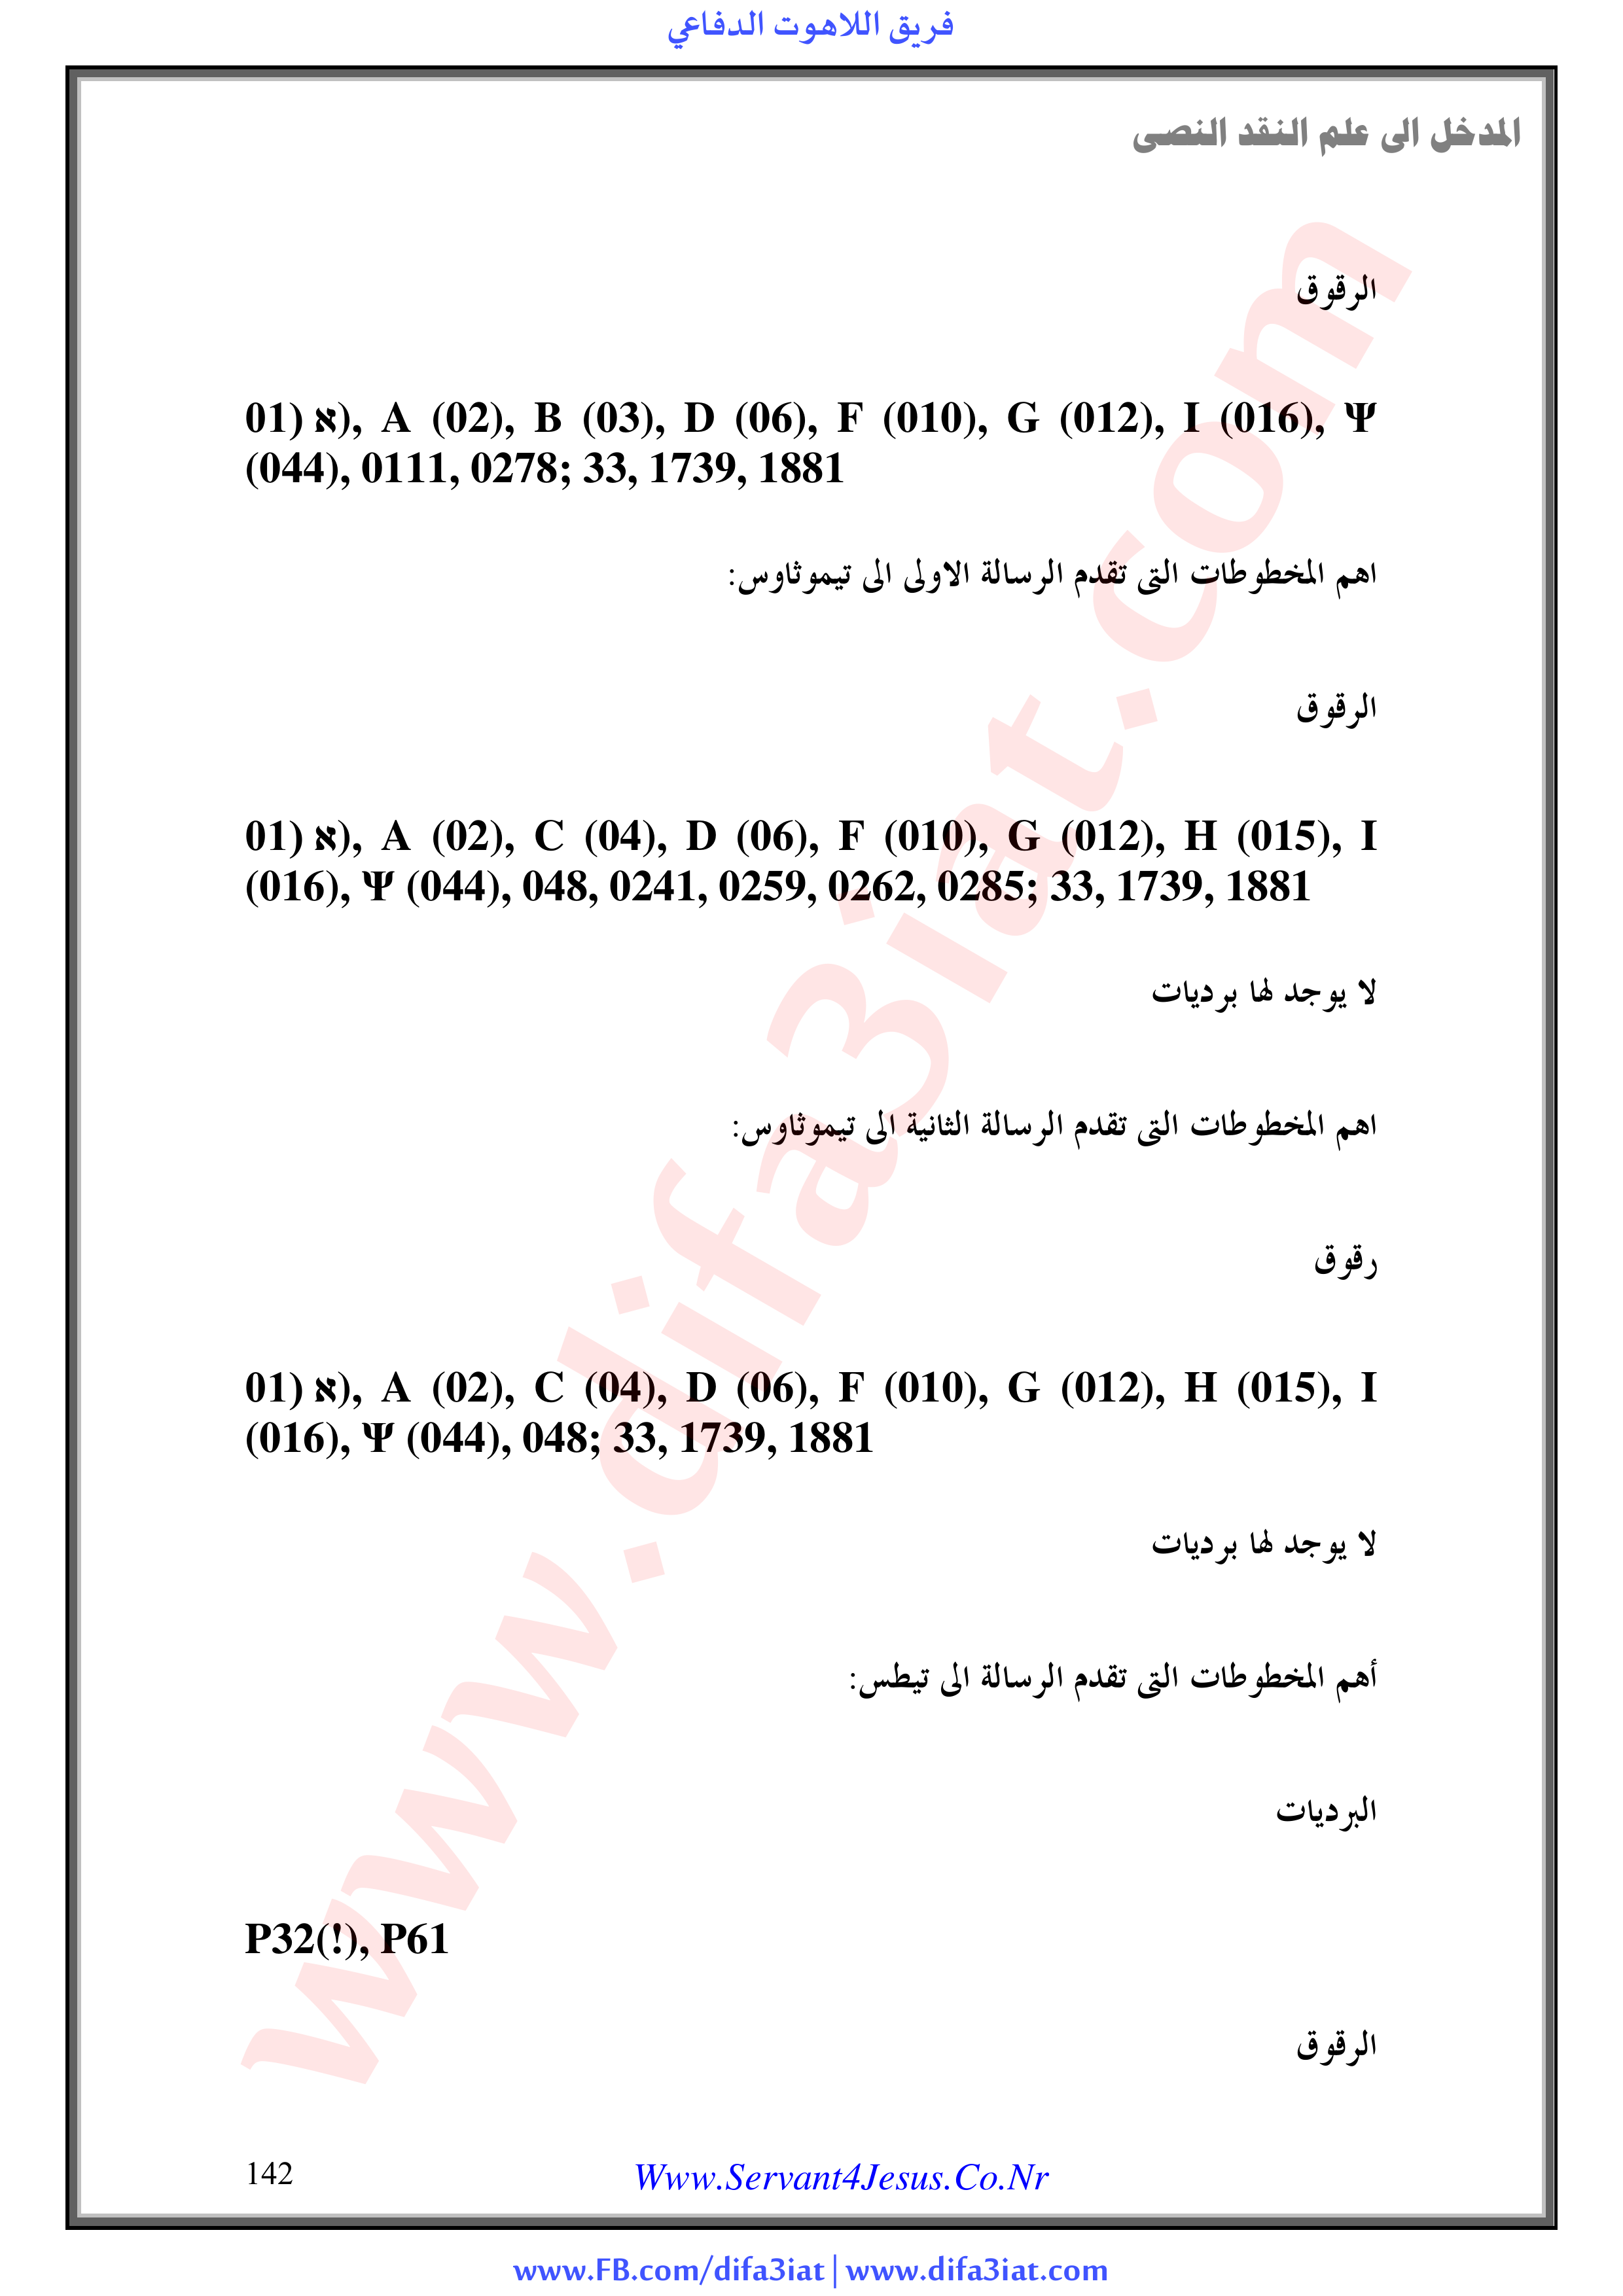 فريق اللاهوت الدفاعي
المدخل الى علم النقد النصى
الرقوق
01) א), A (02), B (03), D (06), F (010), G (012), I (016), Ψ
(044), 0111, 0278; 33, 1739, 1881
اهم المخطوطات التى تقدم الرسالة الاولى الى تيموثاوس:
الرقوق
01) א), A (02), C (04), D (06), F (010), G (012), H (015), I
(016), Ψ (044), 048, 0241, 0259, 0262, 0285; 33, 1739, 1881
لا يوجد لها برديات
اهم المخطوطات التى تقدم الرسالة الثانية الى تيموثاوس:
رقوق
01) א), A (02), C (04), D (06), F (010), G (012), H (015), I
(016), Ψ (044), 048; 33, 1739, 1881
لا يوجد لها برديات
أهم المخطوطات التى تقدم الرسالة الى تيطس:
البرديات
P32(!), P61
الرقوق
142
Www.Servant4Jesus.Co.Nr
www.FB.com/difa3iat | www.difa3iat.com
www.difa3iat.com